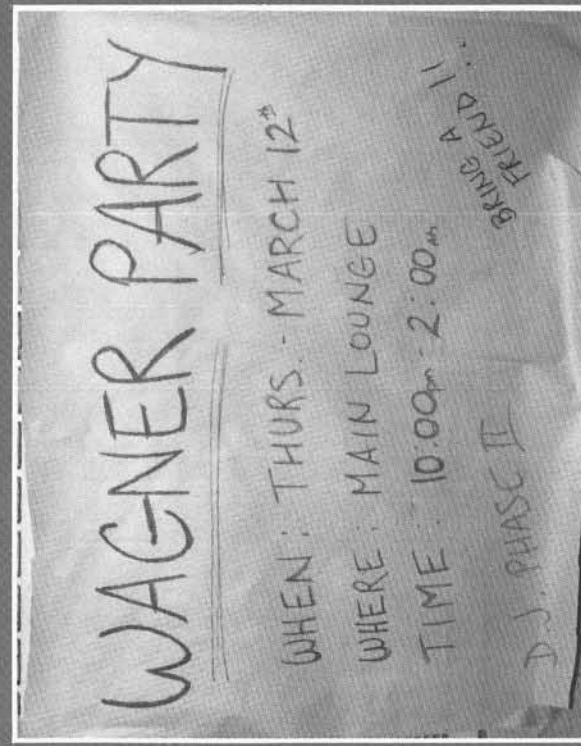 WAGNER PARTY
WHEN: THURS. - MARCH 12th
WHERE: MAIN LOUNGE
TIME: 10:00pm - 2:00am
D.J. PHASE II
BRING A
FRIEND !! ...